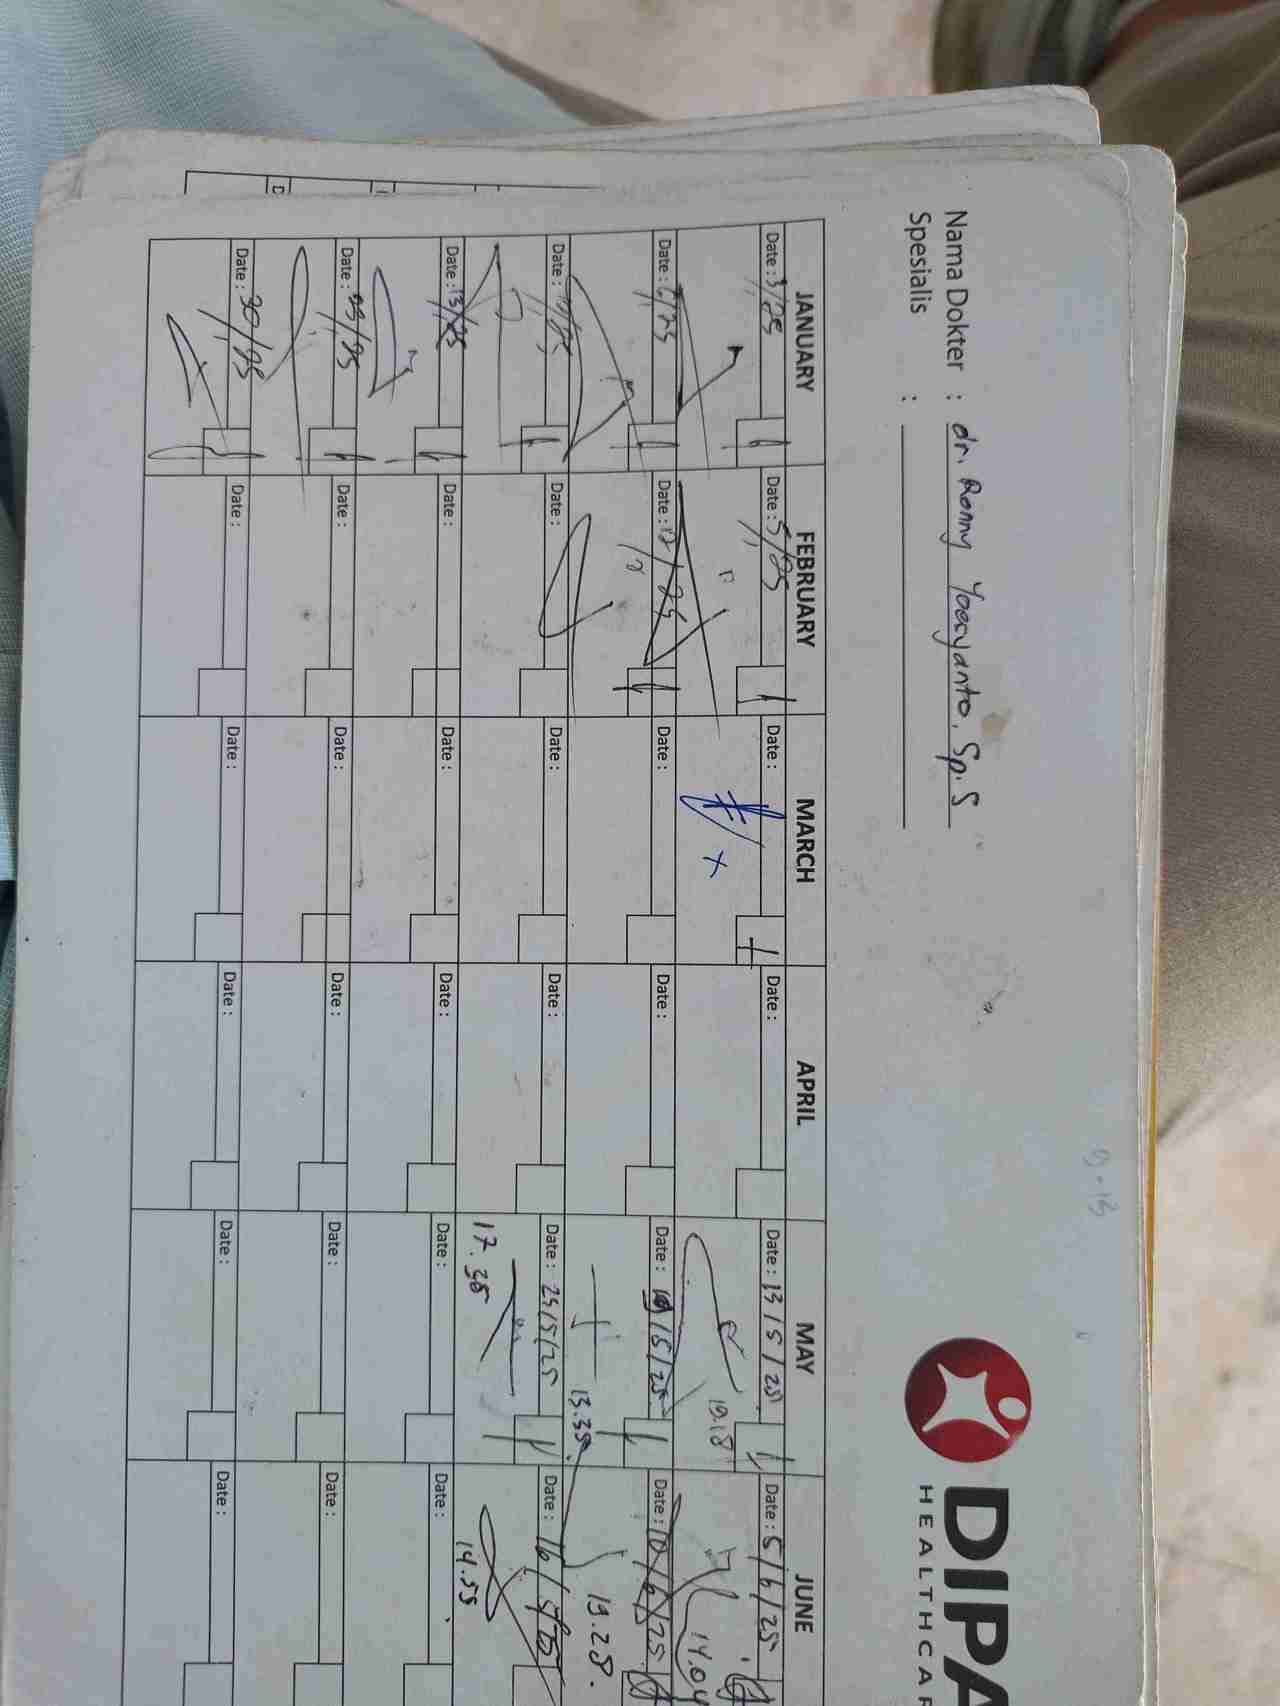 DIPA
HEALTHCAR
Nama Dokter : dr. Ronny Yoesyanto, Sp.S
Spesialis :
9.13
JANUARY FEBRUARY MARCH APRIL MAY JUNE
Date : 3/25 Date : 5/25 Date : Date : Date : 13/5/25 Date : 5/6/25
19.18 14.04
Date : 6/25 Date : 12/25 Date : Date : Date : /5/25 Date : 10/6/25
13.39 19.28.
Date : Date : Date : Date : Date : 25/5/25 Date : 16/
17.38 14.55
Date : 13/25 Date : Date : Date : Date : Date :
Date : 23/25 Date : Date : Date : Date : Date :
Date : 30/25 Date : Date : Date : Date : Date :